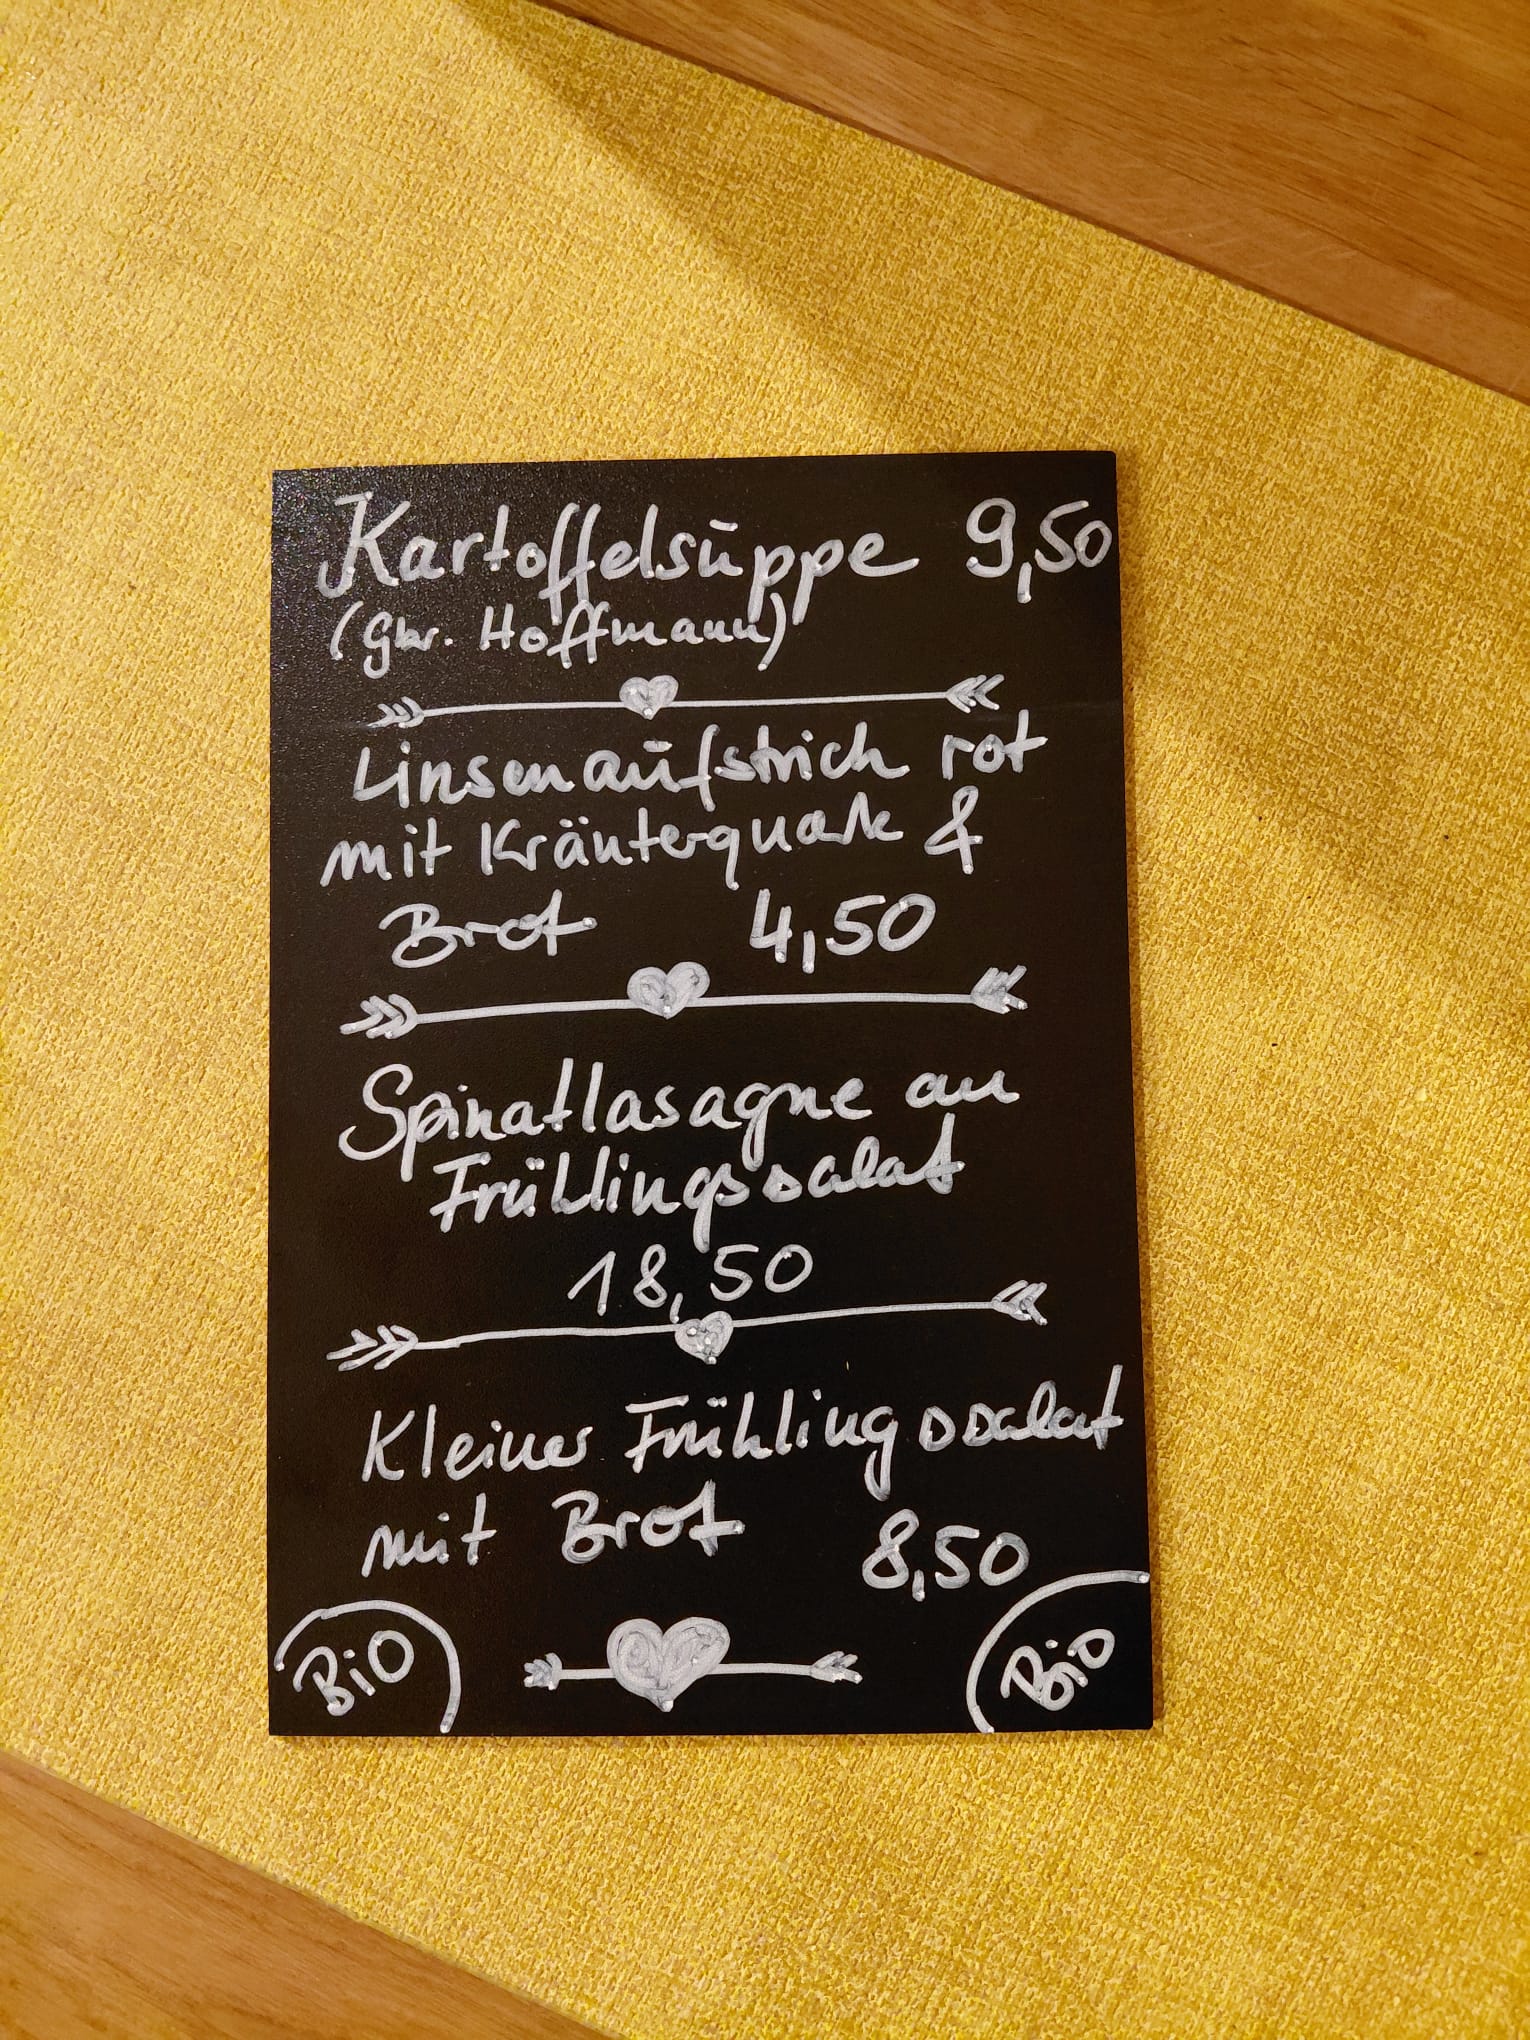 Kartoffelsuppe 9,50
(Gkr. Hoffmann)
Linsenaufstrich rot
mit Kräuterquark &
Brot 4,50
Spinatlasagne an
Frühlingssalat
18,50
Kleiner Frühlingssalat
mit Brot 8,50
Bio
Bio